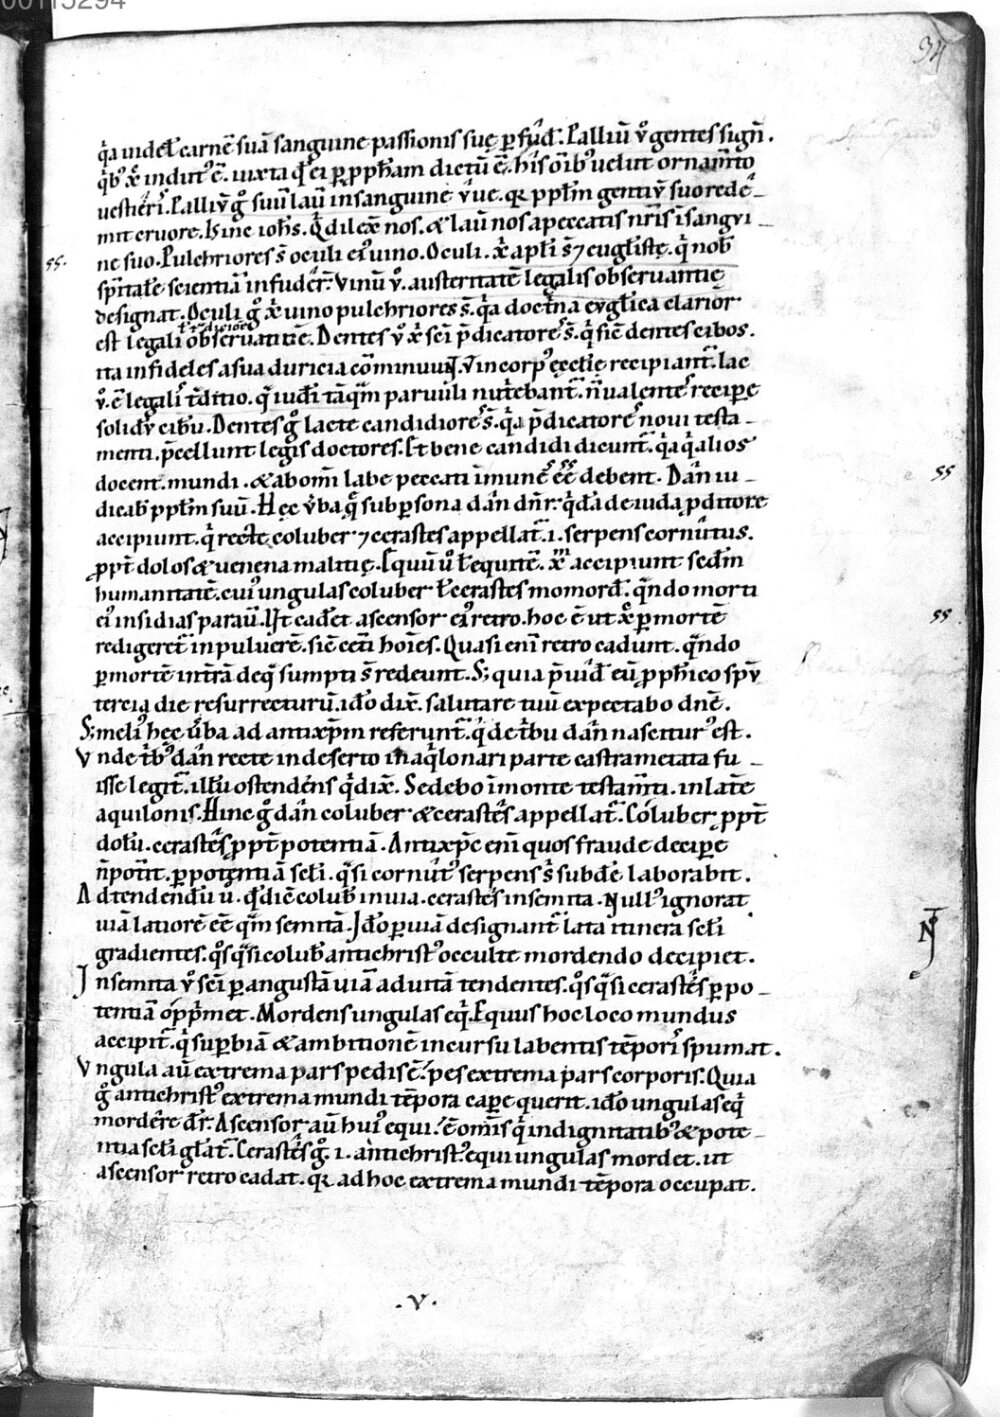 00115294
34
q̇a uidel̃ carnẽ suã sanguine passionis suę ꝑfud̾. Palliũ ů gentes sign̄.
qͥbꝰ xp̄c indutꝰ ẽ. iuxta qd̾ ei ꝑ ꝓph̃am dictũ ẽ. his om̃ibꝰ uelut ornam̃to
uestieris. Palliũ g̊ suũ lauit in sanguine uue. qꝛ pp̃lm gentiũ suo rede-
mit cruore. Hinc ioh̃s. Qͥ dilex̃ nos. & lauit nos a peccatis nr̃is ĩ sangui-
55. ne suo. Pulchriores s̃ oculi eiꝰ uino. Oculi. xp̃i apl̃i s̃ ⁊ euḡliste. qͥ nob̃
sp̃italẽ scientiã infuder̃. Vinũ ů. austeritatẽ legalis obseruantię
designat. Oculi g̊ xp̃i uino pulchriores s̃. q̇a doctͥna euḡlica clarior
ł tradicione
est legali obseruantiẽ. Dentes ů xp̃i sc̃i p̃dicatores s̃. qͥ sic̃ dentes cibos.
ita infideles a sua duricia com̃inuunt. & in corpꝰ ęcclię recipiant̃. lac
ů. ẽ legalis t̃ditio. qͣ iudei tãq̃m paruuli nutͥebant̃. ñ ualentes recipe
solidũ cibũ. Dentes g̊ lacte candidiores s̃. q̇a p̃dicatores noui testa-
menti. p̃cellunt legis doctores. Et bene candidi dicunt̃. q̇a qͥ alios
docent. mundi. & ab om̃i labe peccati ĩmunes ẽẽ debent. Dan iu- 55
dicab̃ pp̃lm suũ. Hęc ůba qͥ sub ꝑsona dan dñr. qͥdã de iuda ꝓditore
accipiunt. qͥ recte coluber ⁊ cerastes appellat̃. i. serpens cornutus.
ꝓpt̃ dolos & uenena malitię. Equũ ů ł equitẽ. xp̃m accipiunt sed̾m
humanitatẽ. cuiꝰ ungulas coluber ł cerastes momord̾. qͣndo morti
eiꝰ insidias parauit. Ut cadet ascensor eiꝰ retro. hoc ẽ ut xp̃c ꝑ mortẽ 55.
redigeret̃ in puluerẽ. sic̃ cet̃i hoies. Quasi eni retro cadunt. qͣndo
ꝑ mortẽ in tr̃am deq̃ sumpti s̃ redeunt. S; quia p̃uid̾ eũ ꝓph̃ico sp̃u
tercia die resurrecturũ. ido dix̃. salutare tuũ expectabo dñe.
S; meliꝰ hęc ůba ad antixp̃m referunt̃. qͥ de tͥbu dan nasciturꝰ est.
Vnde tͥbꝰ dan recte in deserto in aqͥlonari parte castrametata fu-
isse legit̃. illũ ostendens qͥ dix̃. Sedebo ĩ monte testam̃ti. in laterẽ
aquilonis. Hinc g̊ dan coluber & cerastes appellat̃. Coluber; ꝓpt̃
dolũ. cerastes ꝓpt̃ potentiã. Antixp̃c eni quos fraude decipe
ñ poterit. ꝑ potentiã scl̃i. qͣsi cornutꝰ serpens s̃ subde laborabit.
Adtendendũ ů. qd̾ dic̃ colub̃ in uia. cerastes in semita. Nullꝰ ignorat
uiã latiorẽ ẽẽ qͣm semitã. Ido ꝑ uiã designant̃ lata itinera scl̃i
gradientes. qͦs qͣsi colub̃ antichristꝰ occulte mordendo decipiet.
In semita ů sc̃i ꝑ angustã uiã ad uitã tendentes. qͦs qͣsi cerastes ꝑ po-
tentiã oppͥmet. Mordens ungulas eqͥ. Equus hoc loco mundus
accipit̃. qͥ suꝑbiã & ambitionẽ incursu labentis tẽporis spumat.
Vngula aũ extrema pars pedis ẽ. pes extrema pars corporis. Quia
g̊ antichristꝰ extrema mundi tẽpora cape querit. ido ungulas eqͥ
mordere dr̃. Ascensor aũ huiꝰ equi. ẽ om̃is qͥ in dignitatibꝰ & pote-
ntia scl̃i gl̃at̃. Cerastes g̊. i. antichristꝰ. equi ungulas mordet. ut
ascensor retro cadat. qꝛ ad hoc extrema mundi tẽpora occupat.
.V.